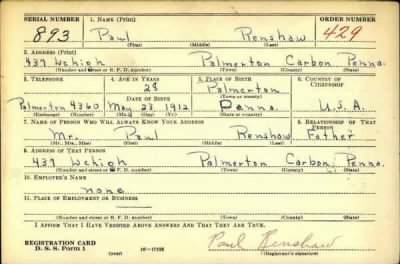 SERIAL NUMBER 1. NAME (Print) ORDER NUMBER
893 Paul Renshaw 429
(First) (Middle) (Last)
2. ADDRESS (Print)
439 Lehigh Palmerton Carbon Penna.
(Number and street or R. F. D. number) (Town) (County) (State)
3. TELEPHONE 4. AGE IN YEARS 5. PLACE OF BIRTH 6. COUNTRY OF CITIZENSHIP
28 Palmerton
(Town or county)
Palmerton 4360 DATE OF BIRTH
May 23, 1912 Penna. U.S.A.
(Exchange) (Number) (Mo.) (Day) (Yr.) (State or country)
7. NAME OF PERSON WHO WILL ALWAYS KNOW YOUR ADDRESS 8. RELATIONSHIP OF THAT PERSON
Mr. Paul Renshaw Father
(Mr., Mrs., Miss) (First) (Middle) (Last)
9. ADDRESS OF THAT PERSON
439 Lehigh Palmerton Carbon, Penna.
(Number and street or R. F. D. number) (Town) (County) (State)
10. EMPLOYER'S NAME
none
11. PLACE OF EMPLOYMENT OR BUSINESS
(Number and street or R. F. D. number) (Town) (County) (State)
I AFFIRM THAT I HAVE VERIFIED ABOVE ANSWERS AND THAT THEY ARE TRUE.
REGISTRATION CARD
D. S. S. Form 1 (over) 16—17105 Paul Renshaw
(Registrant's signature)